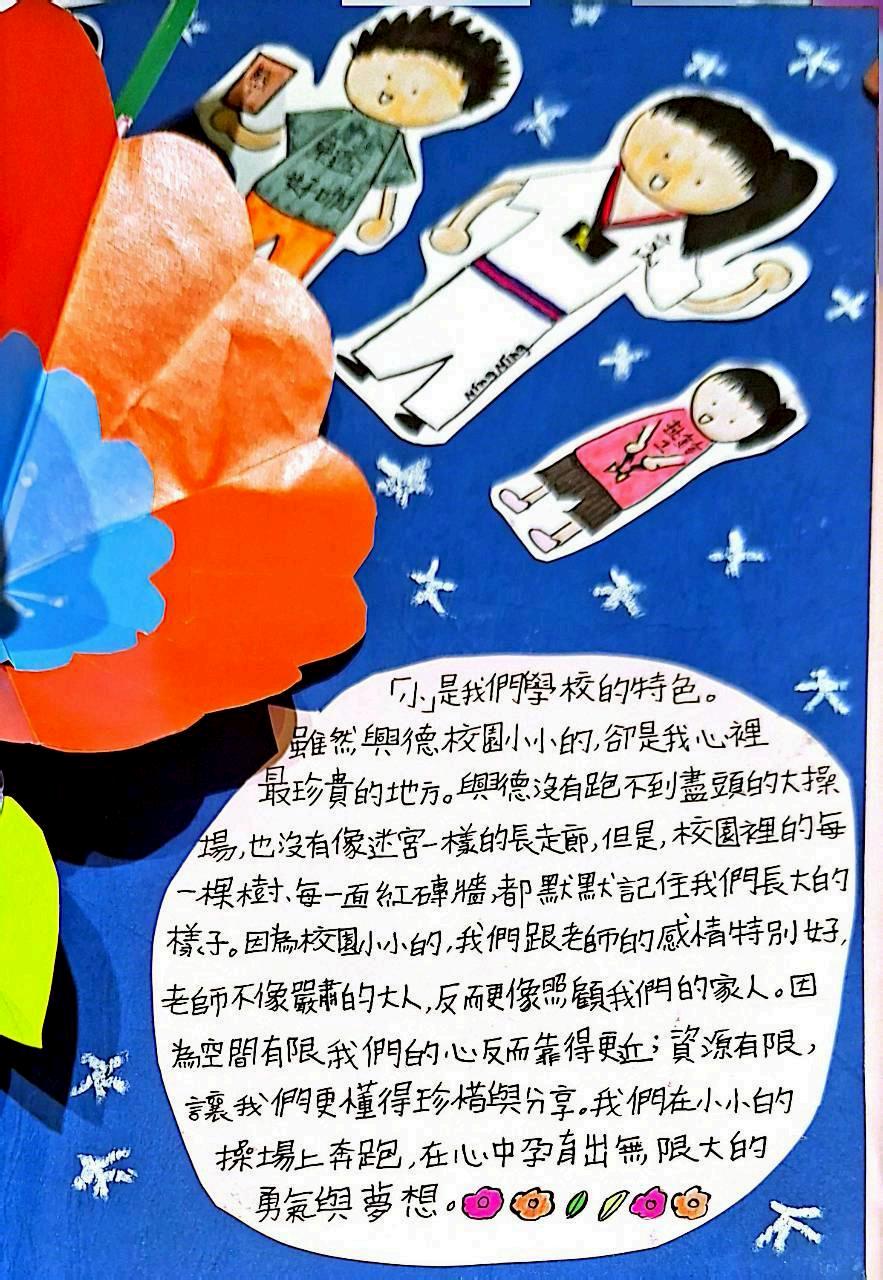 NingNing
「小」是我們學校的特色。
雖然興德校園小小的,卻是我心裡
最珍貴的地方。興德沒有跑不到盡頭的大操
場,也沒有像迷宮一樣的長走廊,但是,校園裡的每
一棵樹、每一面紅磚牆,都默默記住我們長大的
樣子。因為校園小小的,我們跟老師的感情特別好,
老師不像嚴肅的大人,反而更像照顧我們的家人。因
為空間有限,我們的心反而靠得更近;資源有限,
讓我們更懂得珍惜與分享。我們在小小的
操場上奔跑,在心中孕育出無限大的
勇氣與夢想。